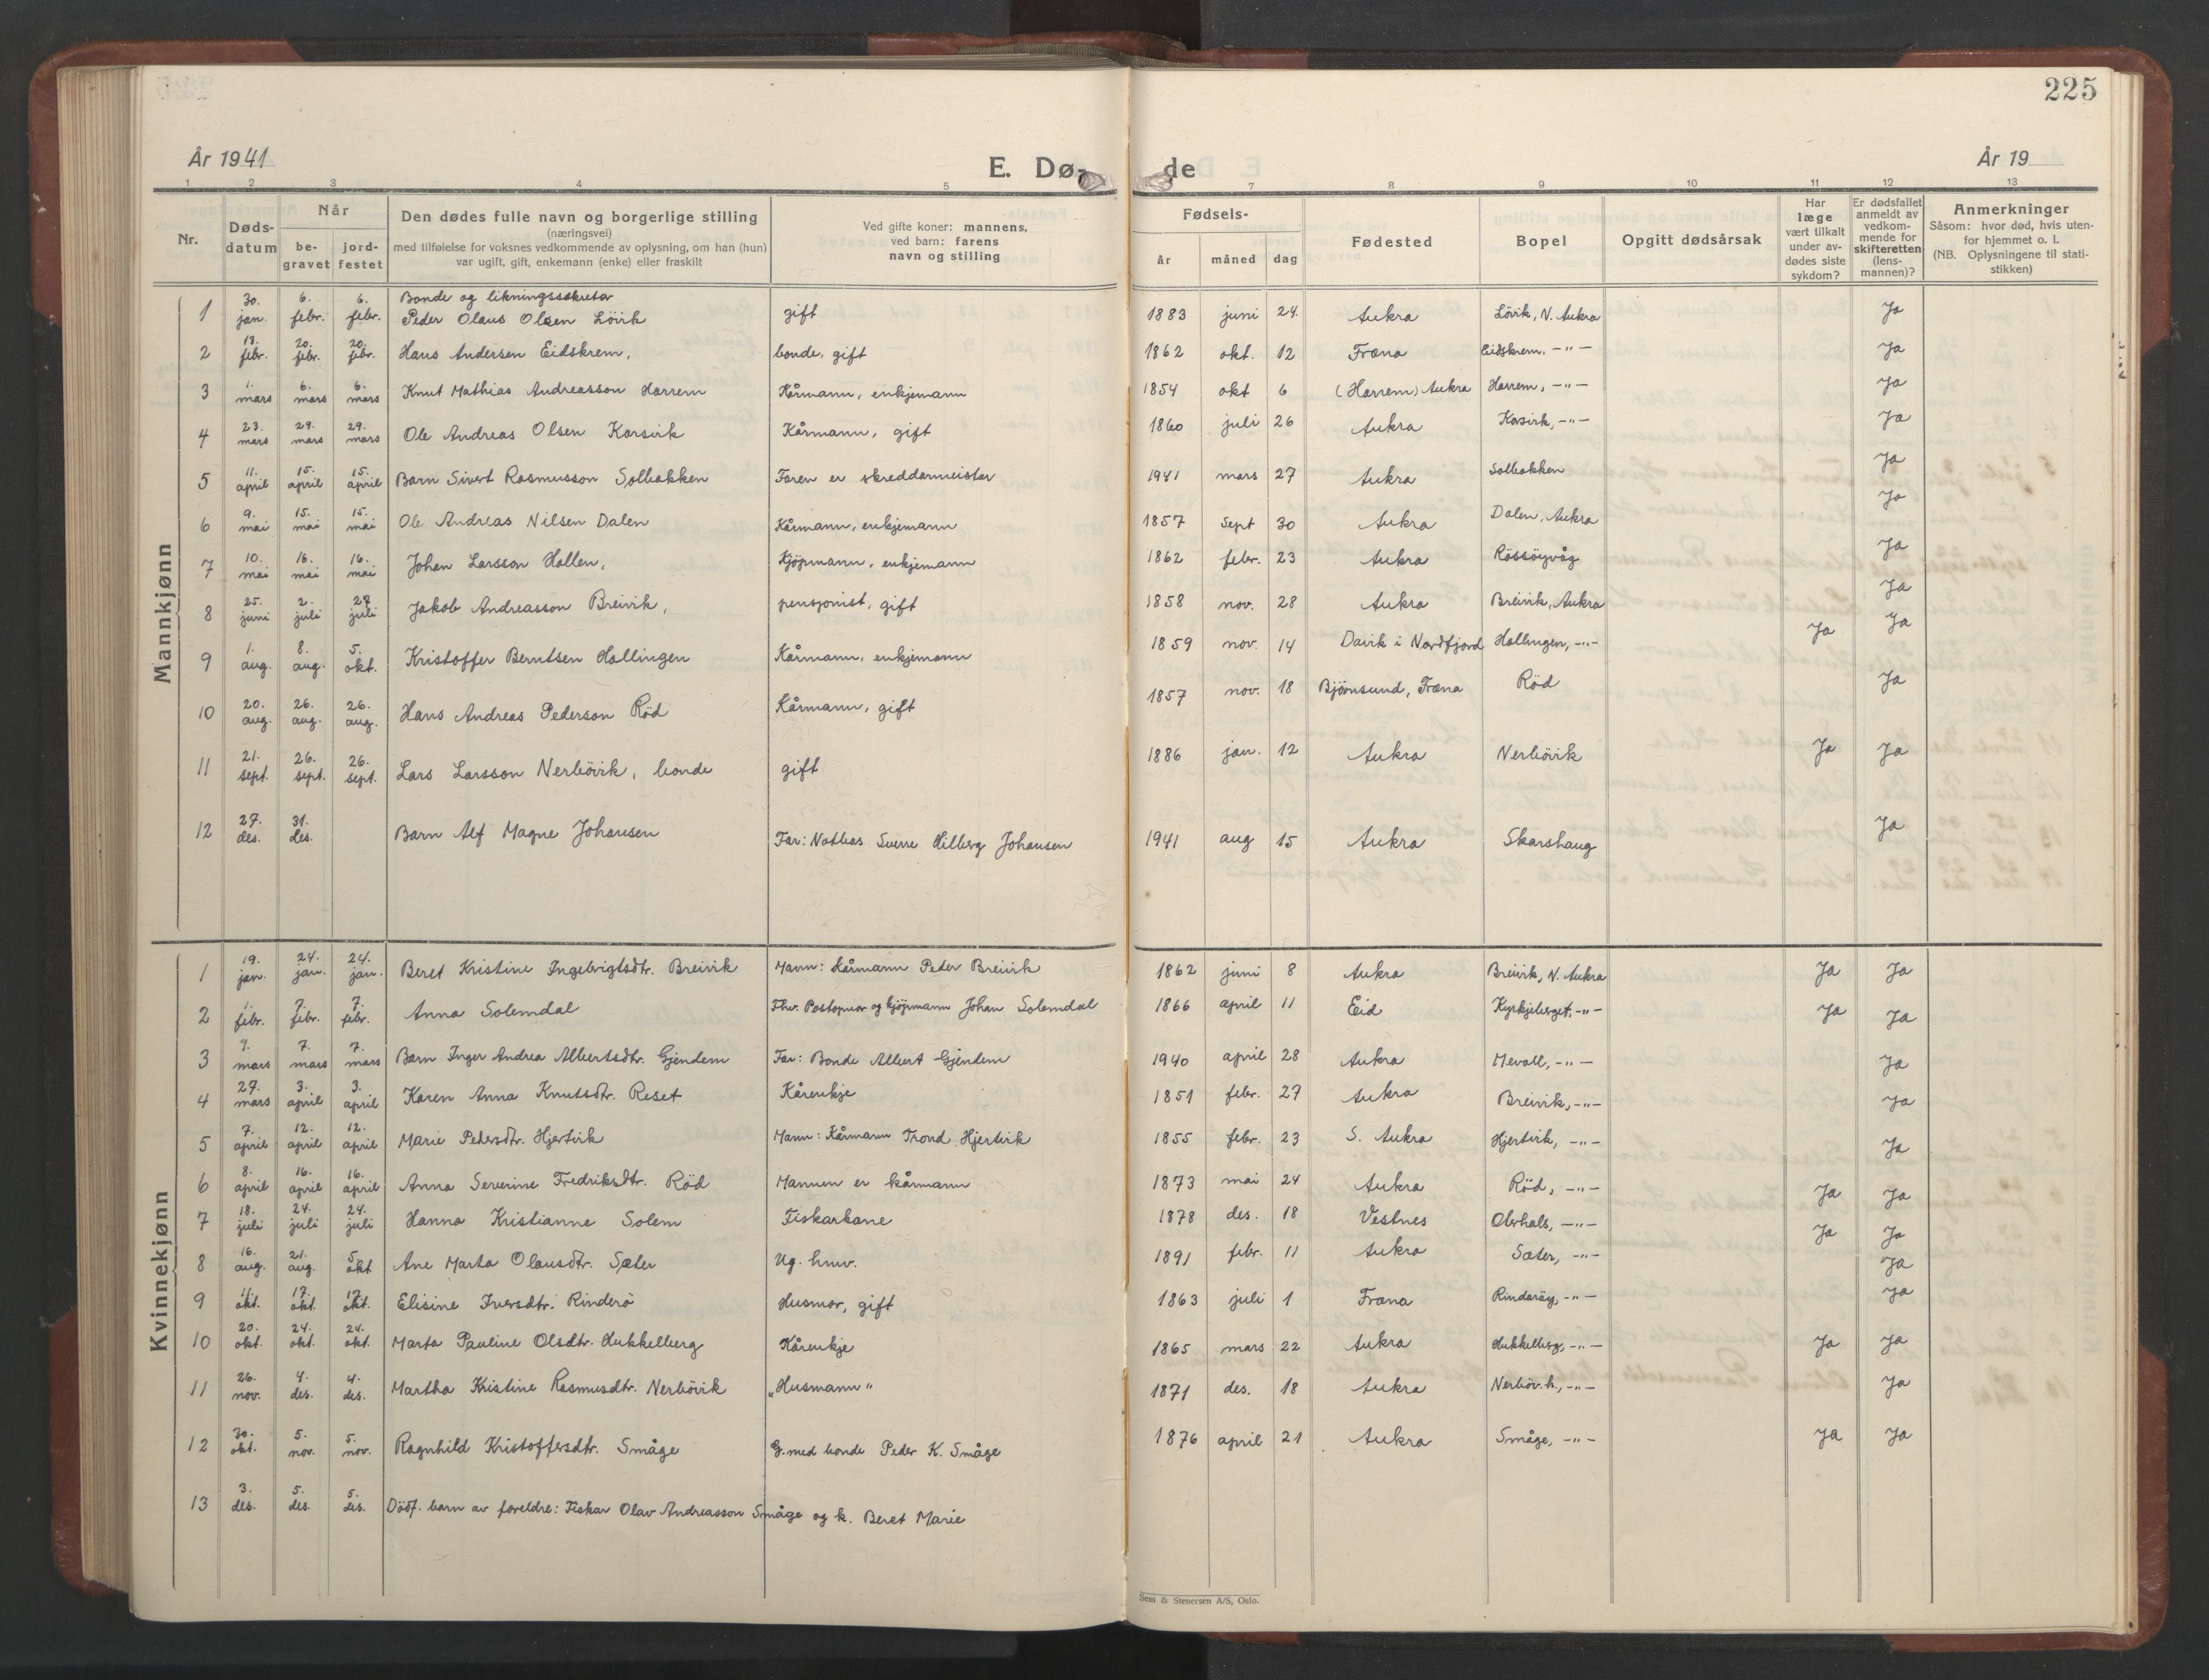 225
År 1941
E. Dø- de
År 19
1 2 3 4 5 7 8 9 10 11 12 13
Nr.
Døds-
datum
Når
be-
gravet
jord-
festet
Den dødes fulle navn og borgerlige stilling
(næringsvei)
med tilføielse for voksnes vedkommende av oplysning, om han (hun)
var ugift, gift, enkemann (enke) eller fraskilt
Ved gifte koner: mannens,
ved barn: farens
navn og stilling
Fødsels-
år måned dag
Fødested
Bopel
Opgitt dødsårsak
Har
læge
vært tilkalt
under av-
dødes siste
sykdom?
Er dødsfallet
anmeldt av
vedkom-
mende for
skifteretten
(lens-
mannen)?
Anmerkninger
Såsom: hvor død, hvis uten-
for hjemmet o. l.
(NB. Oplysningene til stati-
stikken)
Mannkjønn
1 30. jan. 6. febr. 6. febr. Bonde og likningssekretær
Peder Olaus Olsen Lövik gift 1883 juni 24. Aukra Lövik, N. Aukra Ja
2 13. febr. 20. febr. 20. febr. Hans Andersen Eidskrem, bonde, gift 1862 okt. 12 Fræna Eidskrem, -"- Ja
3 1. mars 6. mars 6. mars Knut Mathias Andreasson Harrem Kårmann, enkjemann 1854 okt 6 (Harrem) Aukra Harrem, -"- Ja
4 23. mars 29. mars 29. mars Ole Andreas Olsen Korsvik Kårmann, gift 1860 juli 26 Aukra Korsvik, -"- Ja
5 11. april 15. april 15. april Barn Sivert Rasmusson Solbakken Faren er skreddarmeister 1941 mars 27 Aukra Solbakken Ja
6 9. mai 15. mai 15. mai Ole Andreas Nilsen Dalen Kårmann, enkjemann 1857 Sept 30 Aukra Dalen, Aukra Ja
7 10. mai 16. mai 16. mai Johan Larsson Hollen, Kjöpmann, enkjemann 1862 febr. 23 Aukra Rössöyvåg Ja
8 25. juni 2. juli 27 juli Jakob Andreasson Breivik, pensjonist, gift 1858 nov. 28 Aukra Breivik, Aukra Ja
9 1. aug. 8. aug. 5. okt. Kristoffer Berntsen Hollingen Kårmann, enkjemann 1859 nov. 14 Davik i Nordfjord Hollingen, -"- Ja Ja
10 20. aug. 26. aug. 26. aug. Hans Andreas Pederson Röd Kårmann, gift 1857 nov. 18 Björnsund, Fræna Röd Ja
11 21. sept. 26. sept. 26. sept. Lars Larsson Nerbövik, bonde gift 1886 jan. 12 Aukra Nerbövik Ja Ja
12 27. des. 31. des. Barn Alf Magne Johansen Far: Mathias Sverre Hilberg Johansen 1941 aug 15 Aukra Skarshaug Ja
Kvinnekjønn
1 19. jan. 24. jan. 24. jan. Beret Kristine Ingebrigtsdtr. Breivik Mann: Kårmann Peder Breivik 1862 juni 8 Aukra Breivik, N. Aukra Ja Ja
2 1. febr. 7. febr. 7. febr. Anna Solemdal Fhv. Postopnar og kjöpmann Johan Solemdal 1866 april 11 Eid Kyrkjeberget, -"- Ja Ja
3 mars 7. mars 7. mars Barn Inger Andrea Albertsdtr. Gjendem Far: Bonde Albert Gjendem 1940 april 28 Aukra Mevoll, -"- Ja
4 27. mars 3. april 3. april Karen Anna Knutsdtr. Reset Kårenkje 1851 febr. 27 Aukra Breivik, -"- Ja
5 7. april 12. april 12. april Marie Pedersdtr. Hjertvik Mann: Kårmann Trond Hjertvik 1855 febr. 23 S. Aukra Hjertvik, -"- Ja
6 8. april 16. april 16. april Anna Severine Fredriksdtr. Röd Mannen er kårmann 1873 mai 24 Aukra Röd, -"- Ja Ja
7 18. juli 24. juli 24. juli Hanna Kristianne Solem Fiskarkone 1878 des. 18 Vestnes Oterhals, -"- Ja Ja
8 16. aug. 21. aug. 5. okt Ane Marta Olausdtr. Sæter Ug. hmv. 1891 febr. 11 Aukra Sæter, -"- Ja
9 11. okt. 17. okt. 17. okt. Elisine Iversdtr. Rinderö Husmor, gift 1863 juli 1 Fræna Rindaröy, -"- Ja
10 20. okt. 24. okt. 24. okt. Marta Pauline Olsdtr. Hukkelberg Kårenkje 1865 mars 22 Aukra Hukkelberg, -"- Ja Ja
11 26. nov. 4. des. 4. des. Martha Kristine Rasmusdtr. Nerbövik „Husmann" 1871 des. 18 Aukra Nerböv.h., -"- Ja
12 30. okt. 5. nov. 5. nov. Ragnhild Kristoffersdtr. Småge G. med bonde Peder K. Småge 1876 april 21 Aukra Småge, -"- Ja Ja
13 3. des. 5. des. 5. des. Dödf. barn av foreldre: Fiskar Olav Andreasson Småge og k. Beret Marie
Sem & Stenersen A/S, Oslo.